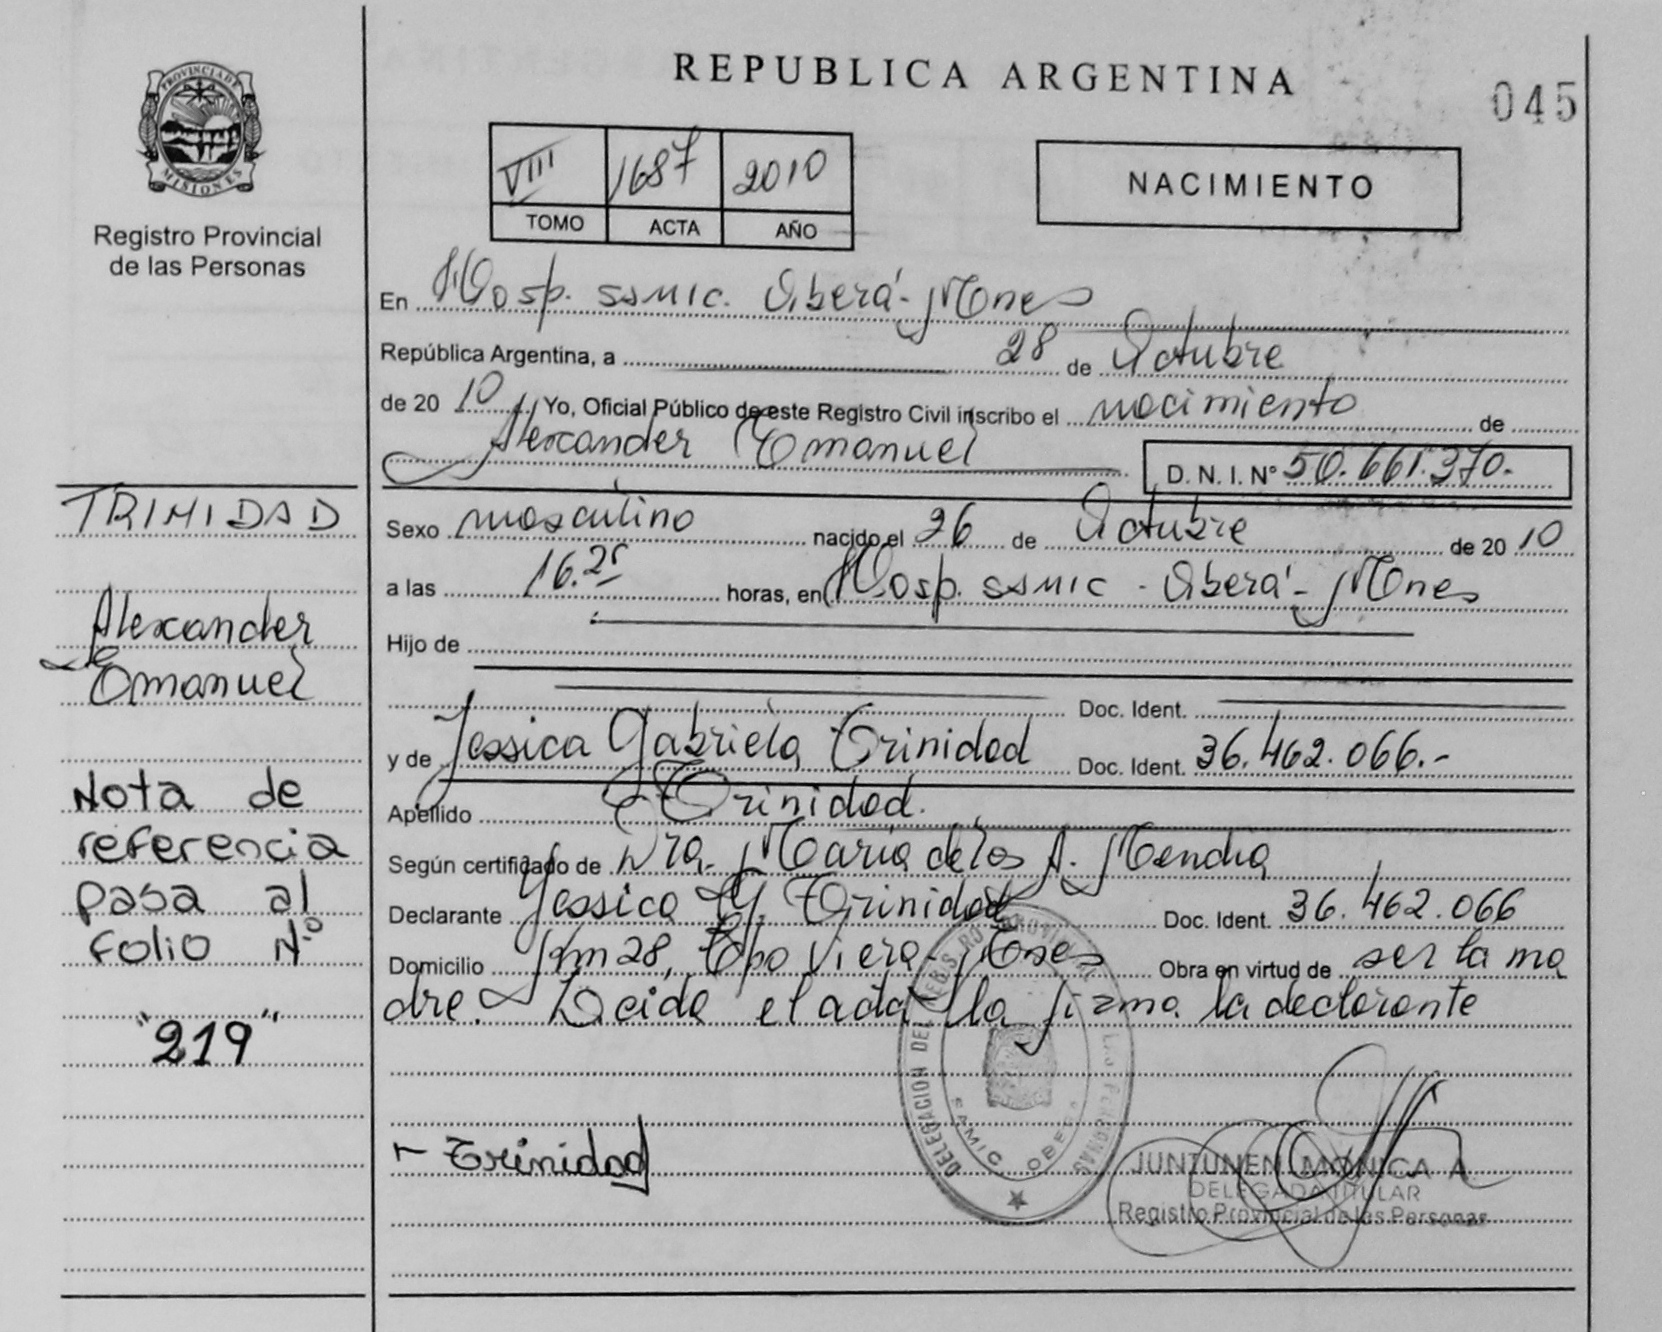 REPUBLICA ARGENTINA
045
PROVINCIA DE
MISIONES
Registro Provincial
de las Personas
VIII 1687 2010
TOMO ACTA AÑO
NACIMIENTO
En Hosp. SAMIC. Oberá - Mnes
República Argentina, a 28 de Octubre
de 20 10 Yo, Oficial Público de este Registro Civil inscribo el nacimiento de
Alexander Emanuel D. N. I. Nº 50.661.370.-
Sexo masculino nacido el 26 de Octubre de 20 10
a las 16.25 horas, en Hosp. SAMIC - Oberá - Mnes
Hijo de
Doc. Ident.
y de Jessica Gabriela Trinidad Doc. Ident. 36.462.066.-
Apellido Trinidad.
Según certificado de Dra. María de los A. Mendia
Declarante Jessica G. Trinidad Doc. Ident. 36.462.066
Domicilio Km 28, Cpo Viera - Mnes Obra en virtud de ser la ma
dre. Leida el acta la firma la declarante
TRINIDAD
Alexander
Emanuel
Nota de
referencia
pasa al
folio Nº
"219"
Trinidad
DELEGACION DEL REGISTRO PROVINCIAL DE LAS PERSONAS
SAMIC OBERA
JUNTUNEN MONICA A.
DELEGADA TITULAR
Registro Provincial de las Personas